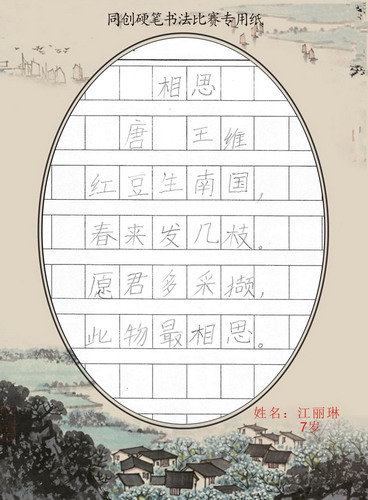 同创硬笔书法比赛专用纸
相思
唐 王维
红豆生南国，
春来发几枝。
愿君多采撷，
此物最相思。
姓名：江丽琳
7岁